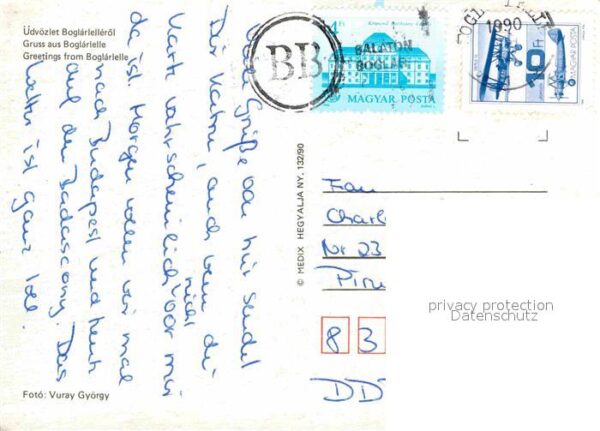 Üdvözlet Boglárlelléről
Gruss aus Boglárlelle
Greetings from Boglárlelle
Viele Grüße von hier sendet
Dir Katrin, auch wenn die
Karte wahrscheinlich nicht vor mir
da ist. Morgen wollen wir mal
nach Budapest und heut
auf den Badascony. Das
Wetter ist ganz toll.
Fotó: Vuray György
© MEDIX HEGYALJA NY. 132/90
BB
4 Ft
MAGYAR POSTA
BALATON
BOGLÁR
1990
10 Ft
MAGYAR POSTA
Frau
Charl
Nr 23
Pirn
privacy protection
Datenschutz
8 3
DD